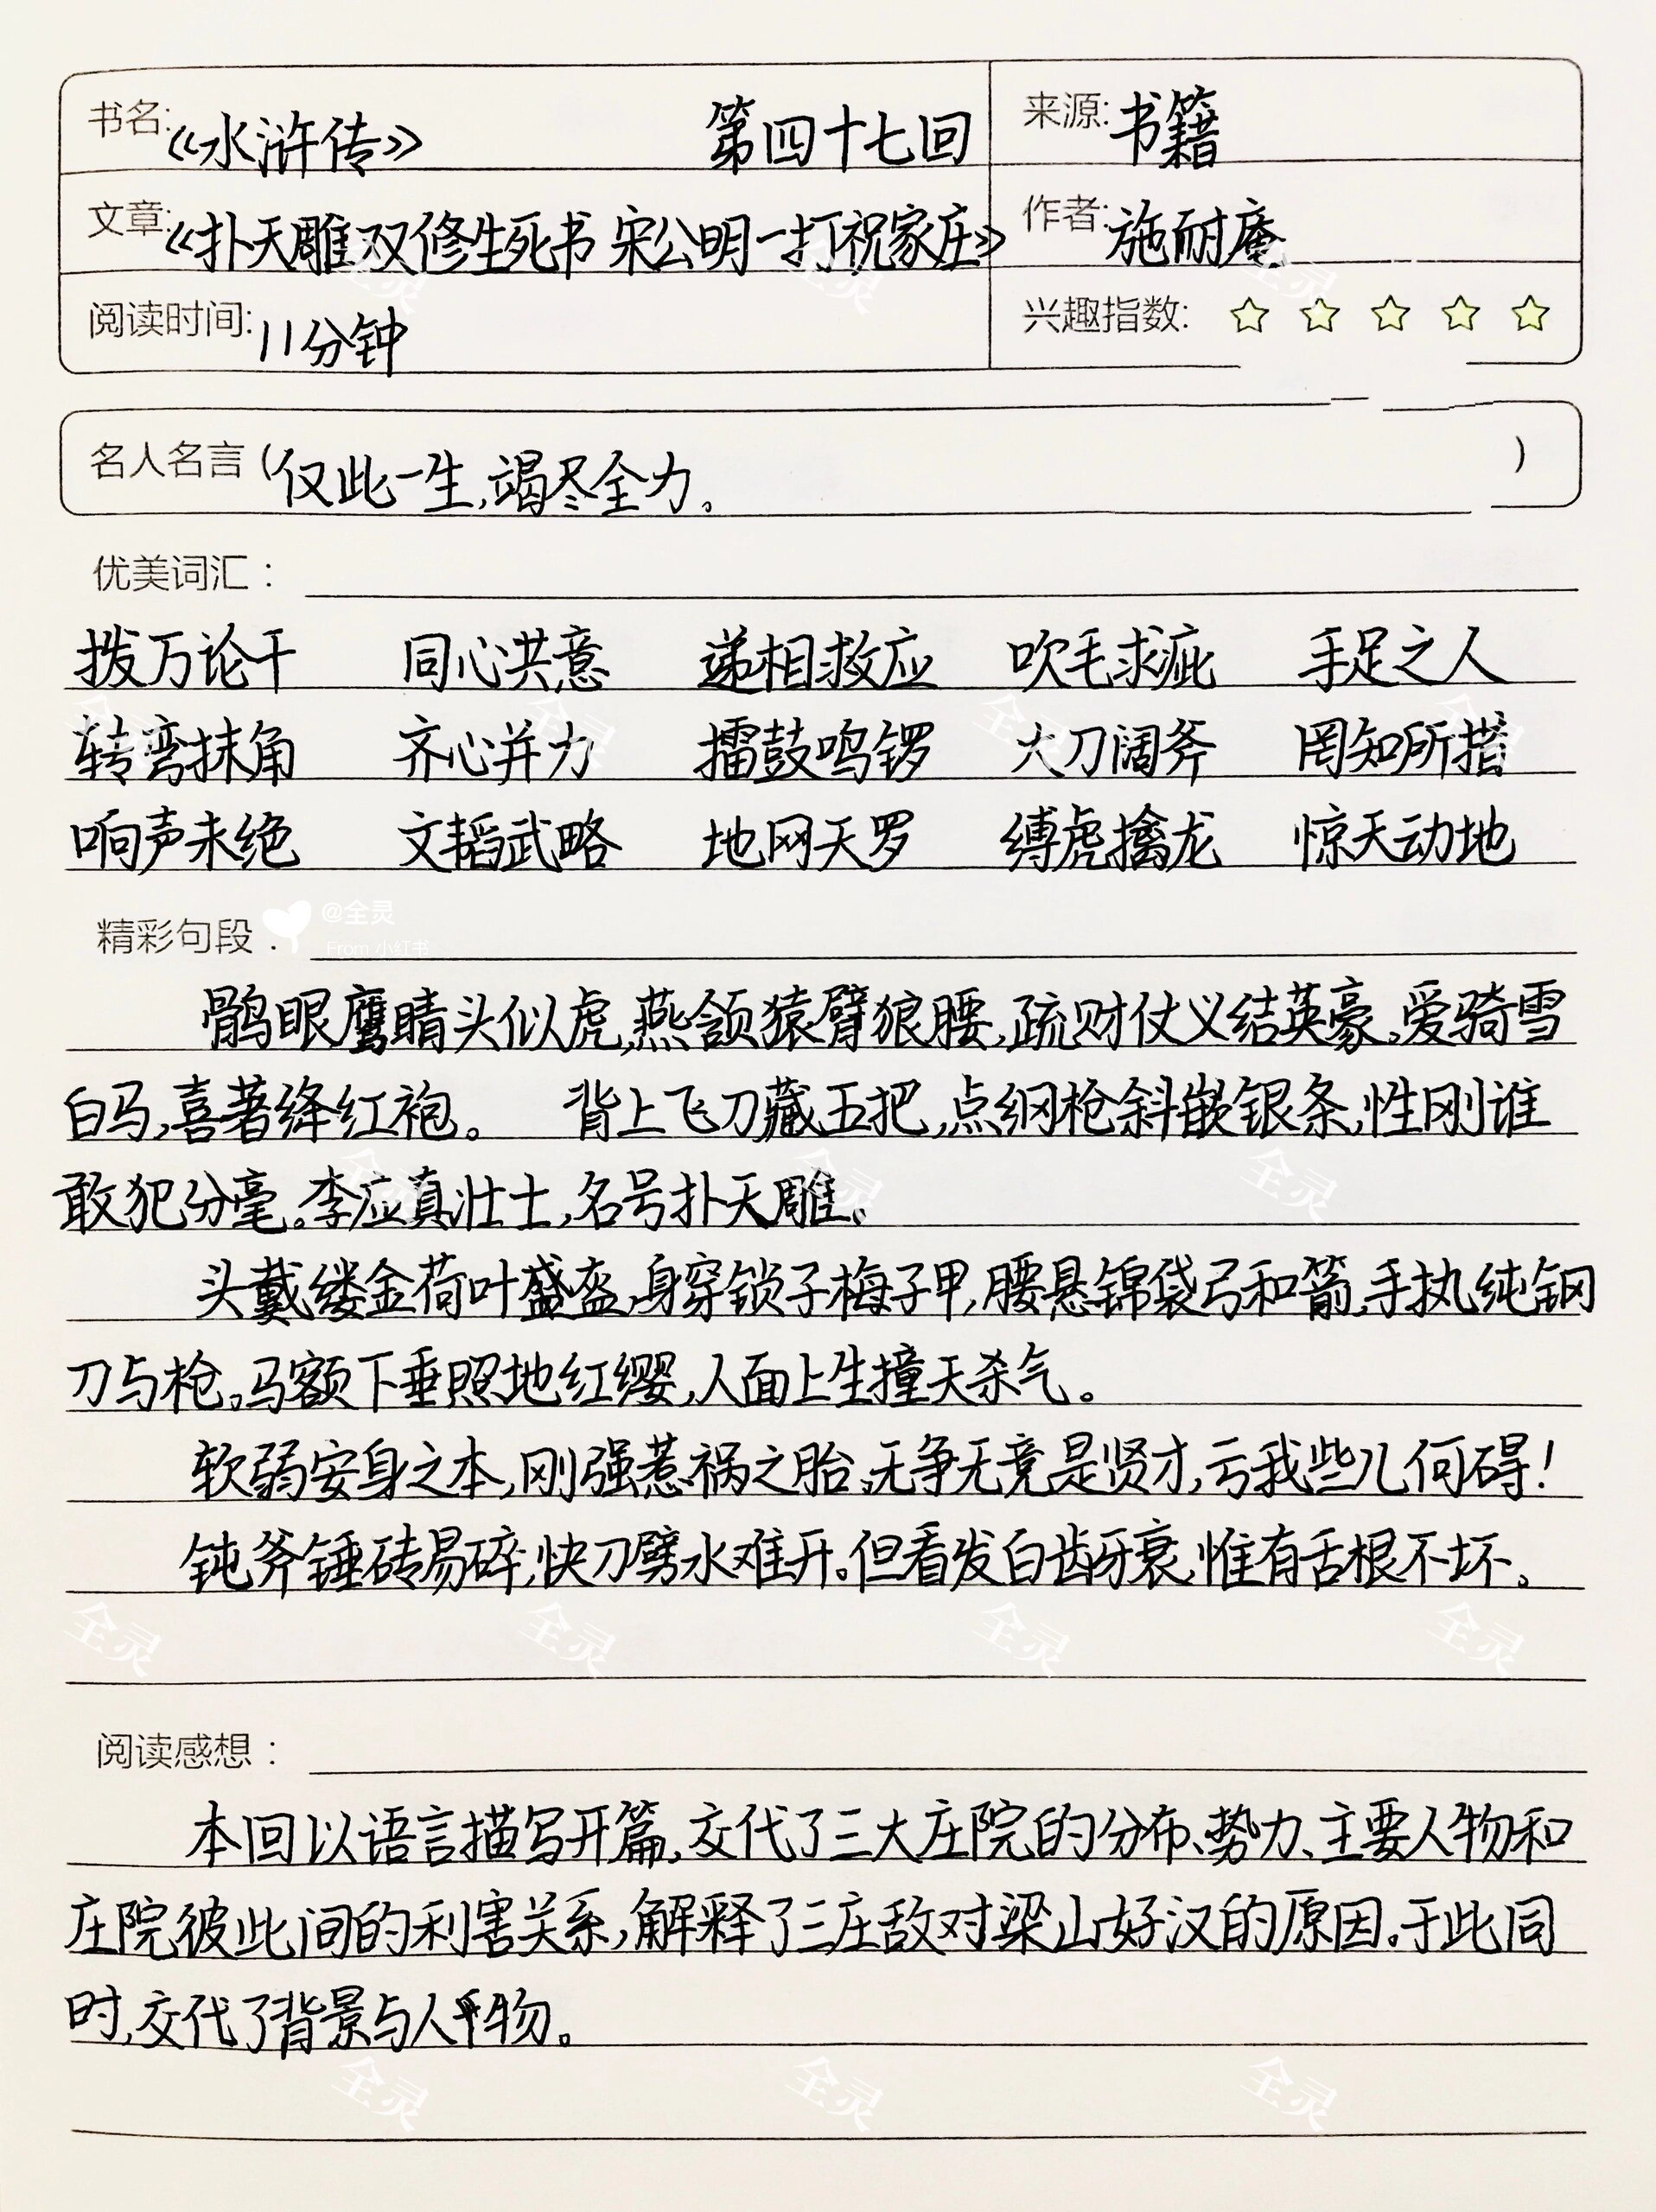 书名:《水浒传》 第四十七回 来源:书籍
文章:《扑天雕双修生死书 宋公明一打祝家庄》 作者:施耐庵
阅读时间:11分钟 兴趣指数: ☆ ☆ ☆ ☆ ☆
名人名言(仅此一生,竭尽全力。)
优美词汇:
拨万论千 同心共意 递相救应 吹毛求疵 手足之人
转弯抹角 齐心并力 擂鼓鸣锣 大刀阔斧 罔知所措
响声未绝 文韬武略 地网天罗 缚虎擒龙 惊天动地
精彩句段:
@全灵
From 小红书
鹘眼鹰睛头似虎,燕颔猿臂狼腰,疏财仗义结英豪。爱骑雪
白马,喜著绛红袍。 背上飞刀藏五把,点钢枪斜嵌银条,性刚谁
敢犯分毫。李应真壮士,名号扑天雕。
头戴缕金荷叶盔,身穿锁子梅子甲,腰悬锦袋弓和箭,手执纯钢
刀与枪。马额下垂照地红缨,人面上生撞天杀气。
软弱安身之本,刚强惹祸之胎。无争无竞是贤才,亏我些儿何碍!
钝斧锤砖易碎,快刀劈水难开。但看发白齿牙衰,惟有舌根不坏。
阅读感想:
本回以语言描写开篇,交代了三大庄院的分布、势力、主要人物和
庄院彼此间的利害关系,解释了三庄敌对梁山好汉的原因。于此同
时,交代了背景与人物。
全灵